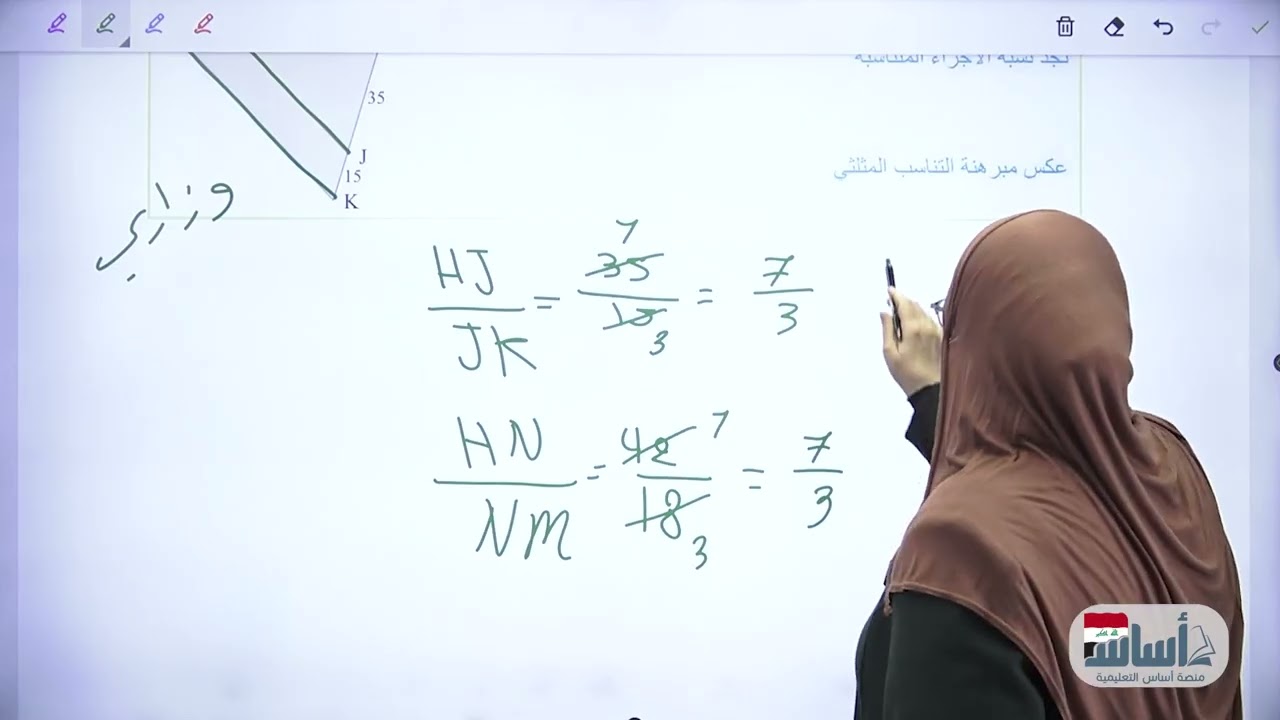 نجد نسبة الاجزاء المتناسبة
35
J
15
K
عكس مبرهنة التناسب المثلثي
وزاري
HJ/JK = 35/15 = 7/3
7
3
HN/NM = 42/18 = 7/3
7
3
أساس
منصة أساس التعليمية